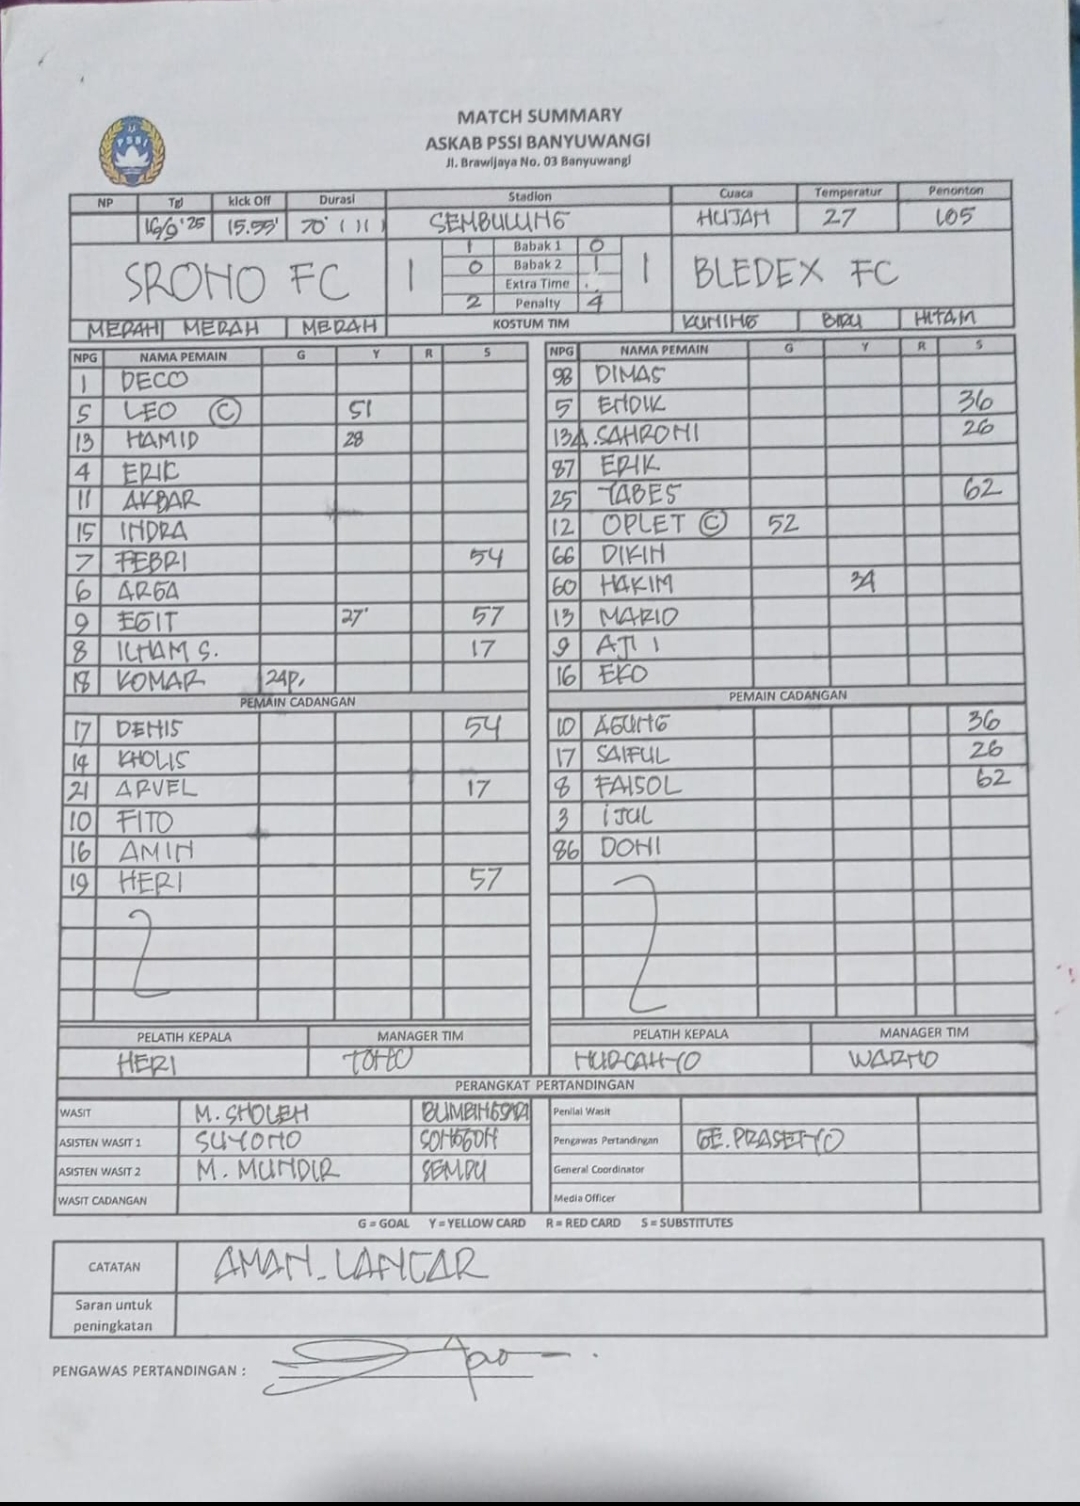 MATCH SUMMARY
ASKAB PSSI BANYUWANGI
Jl. Brawijaya No. 03 Banyuwangi
NP Tgl kick Off Durasi Stadion Cuaca Temperatur Penonton
16/9 '25 15.55' 70' SEMBULUNG HUJAN 27 105
SRONO FC 1 1 Babak 1 0 1 BLEDEX FC
0 Babak 2 1
Extra Time
2 Penalty 4
MERAH MERAH MERAH KOSTUM TIM KUNING BIRU HITAM
NPG NAMA PEMAIN G Y R S NPG NAMA PEMAIN G Y R S
1 DECO 98 DIMAS
5 LEO © 51 5 ENDIK 36
13 HAMID 28 13 A.SAHRONI 26
4 ERIC 87 ERIK
11 AKBAR 25 TABES 62
15 INDRA 12 OPLET © 52
7 FEBRI 54 66 DIKIN
6 ARGA 60 HAKIM 34
9 EGIT 27' 57 13 MARIO
8 ILHAM S. 17 9 AJI
18 KOMAR 24P. 16 EKO
PEMAIN CADANGAN PEMAIN CADANGAN
17 DENIS 54 10 AGUNG 36
14 KHOLIS 17 SAIFUL 26
21 ARVEL 17 8 FAISOL 62
10 FITO 3 iJUL
16 AMIN 86 DONI
19 HERI 57
PELATIH KEPALA MANAGER TIM PELATIH KEPALA MANAGER TIM
HERI NURCAHYO WARNO
PERANGKAT PERTANDINGAN
WASIT M. SHOLEH Penilai Wasit
ASISTEN WASIT 1 SUYONO Pengawas Pertandingan GE. PRASETYO
ASISTEN WASIT 2 M. MUNDIR SEMPU General Coordinator
WASIT CADANGAN Media Officer
G = GOAL Y = YELLOW CARD R = RED CARD S = SUBSTITUTES
CATATAN AMAN. LANCAR
Saran untuk
peningkatan
PENGAWAS PERTANDINGAN :